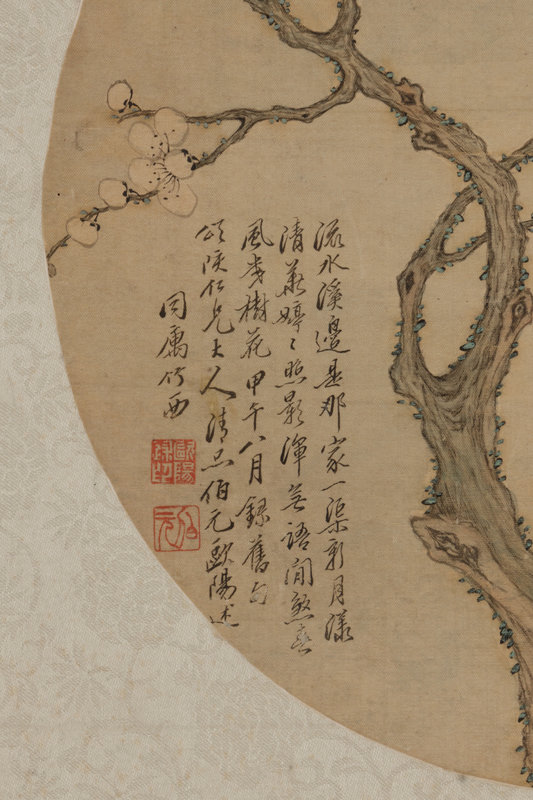 流水溪邊是那家一渠新月漾
清華婷〻照影渾無語閒煞春
風樹花 甲午八月錄舊句
頌陔仁兄大人清品伯元歐陽述
同寓竹西
歐陽述印
伯元